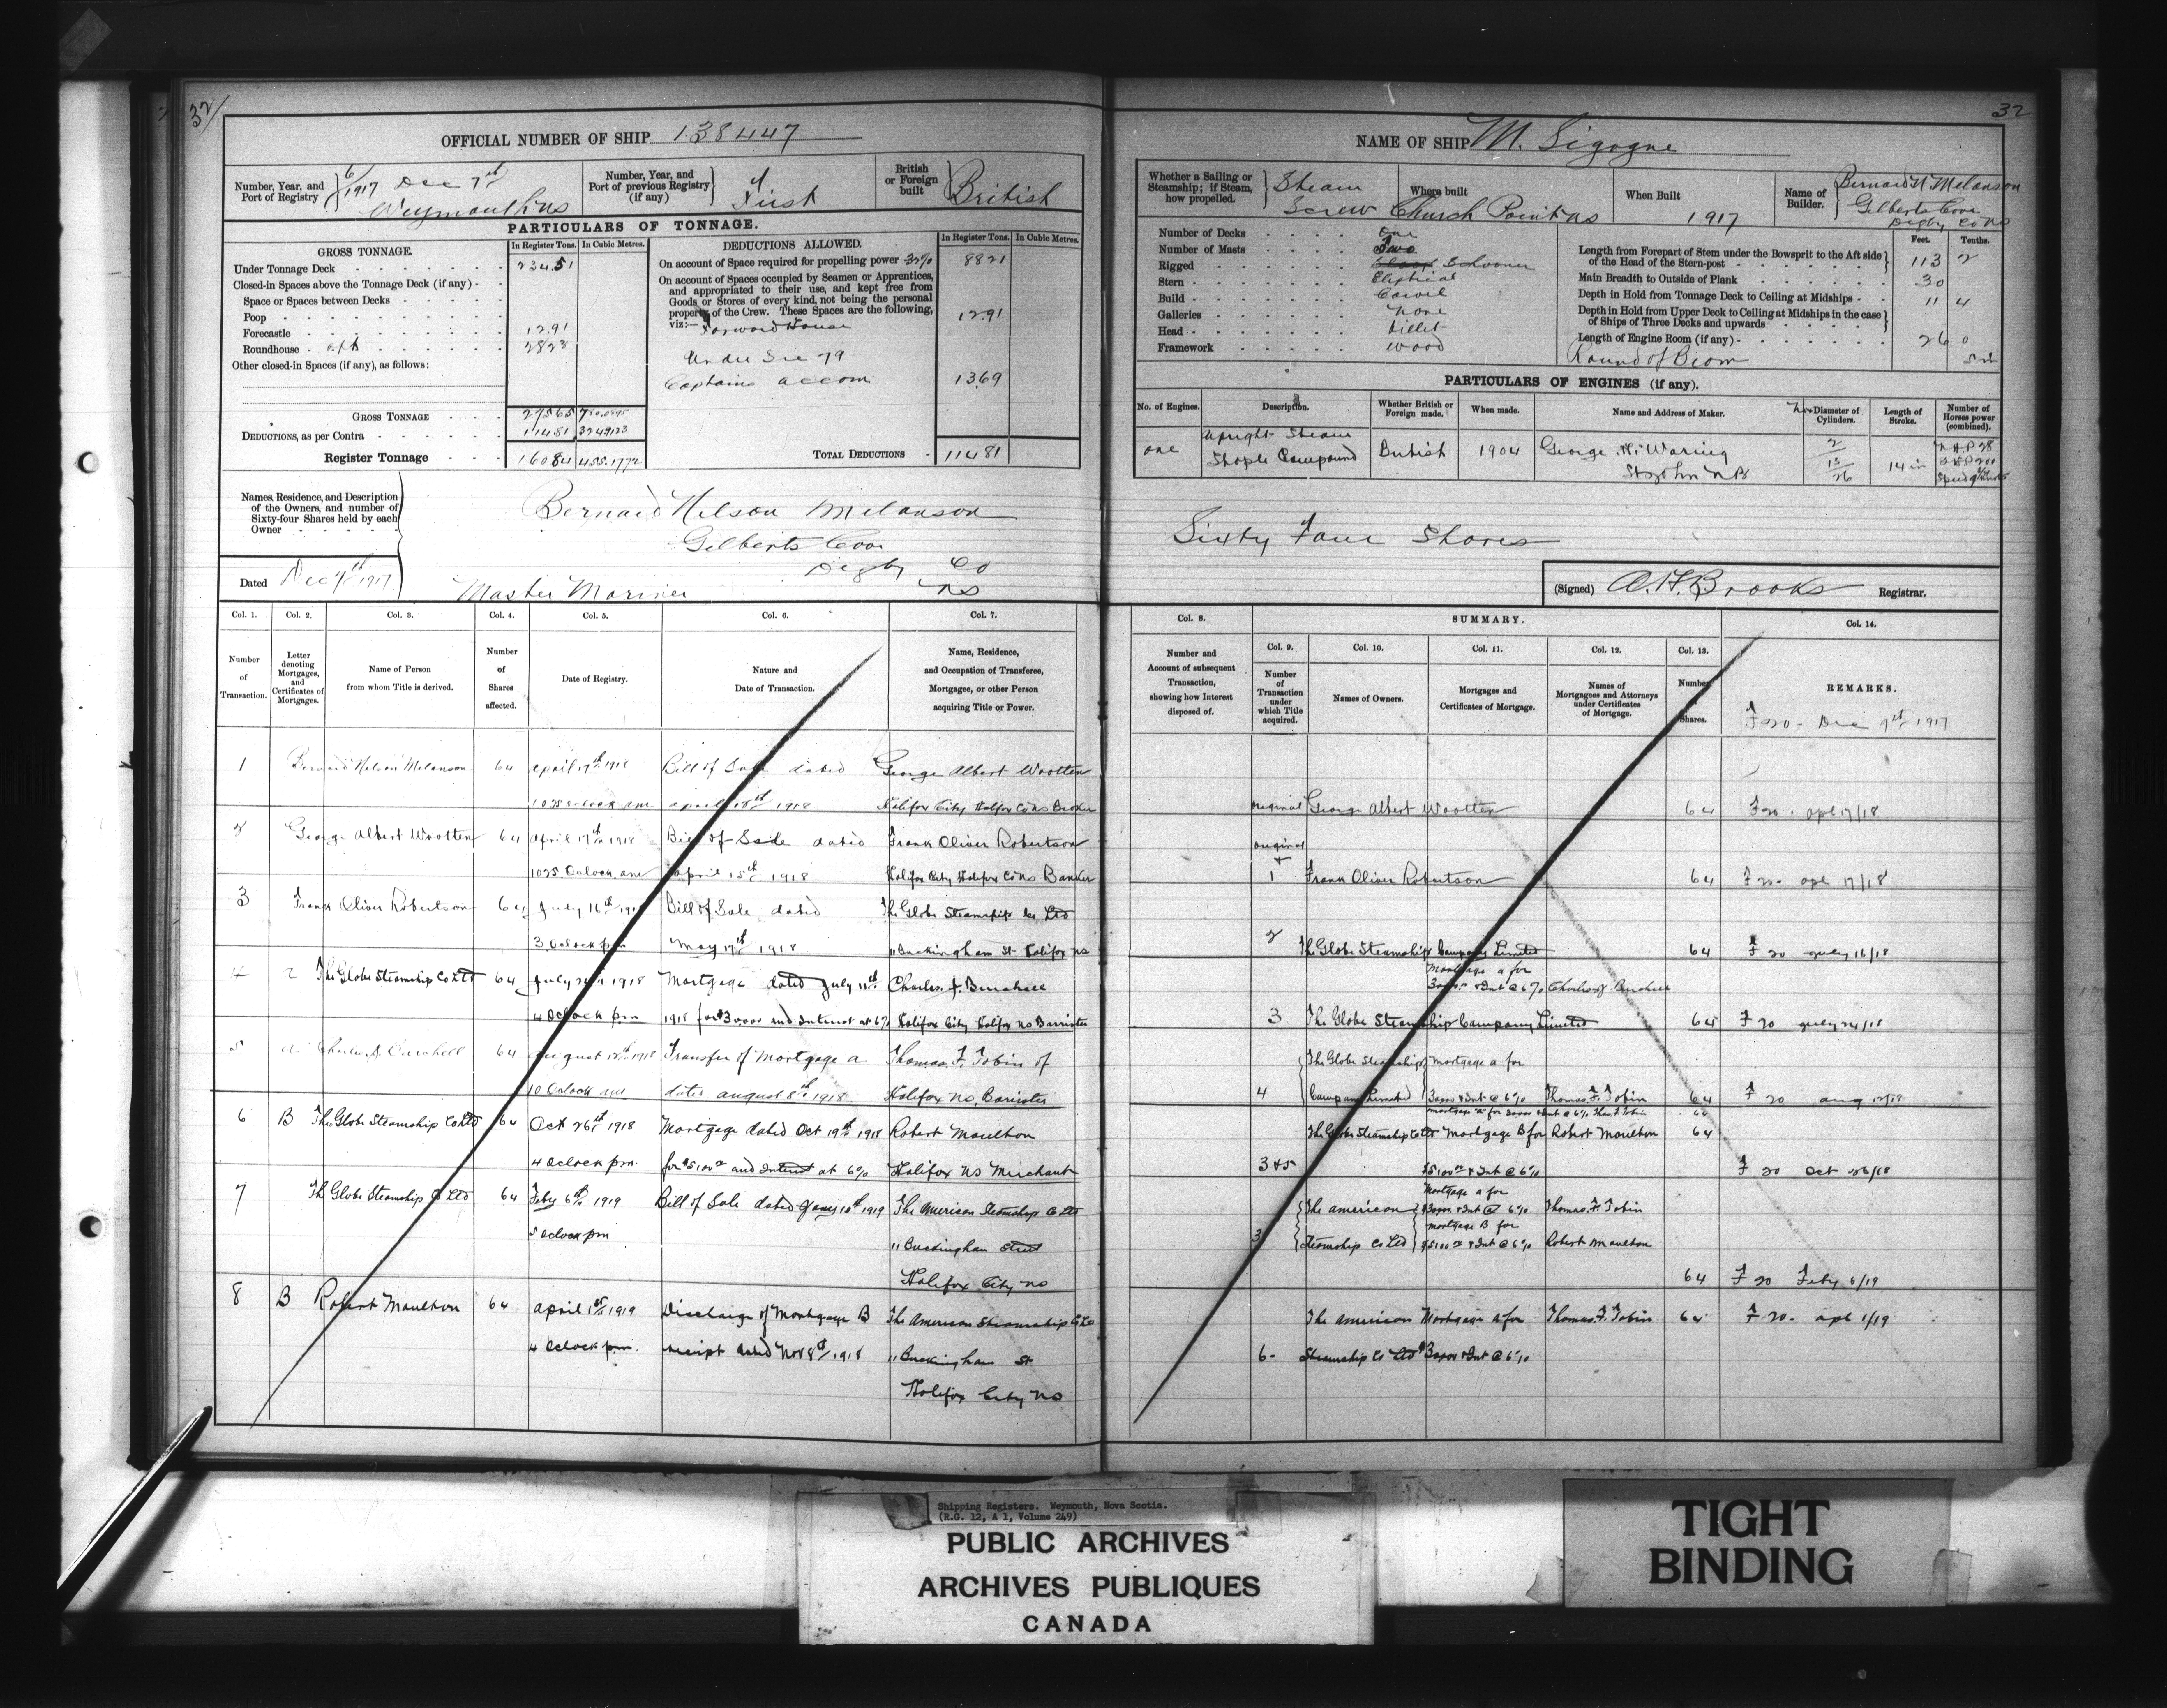 32
32
OFFICIAL NUMBER OF SHIP 138447
NAME OF SHIP M. Sigogne
Number, Year, and Port of Registry 6/1917 Dec 7th Weymouth NS
Number, Year, and Port of previous Registry (if any) First
British or Foreign built British
Whether a Sailing or Steamship; if Steam, how propelled. Steam Screw
Where built Church Point NS
When Built 1917
Name of Builder. Bernard N Melanson Gilberts Cove Digby Co NS
PARTICULARS OF TONNAGE.
GROSS TONNAGE.
In Register Tons. In Cubic Metres.
Under Tonnage Deck 234.51
Closed-in Spaces above the Tonnage Deck (if any)
Space or Spaces between Decks
Poop
Forecastle 12.91
Roundhouse aft 28.23
Other closed-in Spaces (if any), as follows:
GROSS TONNAGE 275.65
DEDUCTIONS, as per Contra 114.81
Register Tonnage 160.84 455.1772
DEDUCTIONS ALLOWED.
In Register Tons. In Cubic Metres.
On account of Space required for propelling power 32% 88.21
On account of Spaces occupied by Seamen or Apprentices, and appropriated to their use, and kept free from Goods or Stores of every kind, not being the personal property of the Crew. These Spaces are the following, viz:— Forward House 12.91
Under Sec 79
Captains accom 13.69
TOTAL DEDUCTIONS 114.81
Number of Decks One
Number of Masts Two
Rigged Schooner
Stern Eliptical
Build Carvel
Galleries None
Head Billet
Framework Wood
Feet. Tenths.
Length from Forepart of Stem under the Bowsprit to the Aft side of the Head of the Stern-post 113 2
Main Breadth to Outside of Plank 30
Depth in Hold from Tonnage Deck to Ceiling at Midships 11 4
Depth in Hold from Upper Deck to Ceiling at Midships in the case of Ships of Three Decks and upwards
Length of Engine Room (if any) 26 0
Round of Beam 5 in
PARTICULARS OF ENGINES (if any).
No. of Engines. Description. Whether British or Foreign made. When made. Name and Address of Maker. Diameter of Cylinders. Length of Stroke. Number of Horses power (combined).
One Upright Steam Compound British 1904 George H. Waring St John NB 2 13 26 14 in NHP 28
Names, Residence, and Description of the Owners, and number of Sixty-four Shares held by each Owner
Bernard Nelson Melanson
Gilberts Cove
Digby Co
NS
Master Mariner
Sixty Four Shares
Dated Dec 7th 1917
(Signed) A. H. Brooks Registrar.
Col. 1. Col. 2. Col. 3. Col. 4. Col. 5. Col. 6. Col. 7.
Number of Transaction.
Letter denoting Mortgages, and Certificates of Mortgages.
Name of Person from whom Title is derived.
Number of Shares affected.
Date of Registry.
Nature and Date of Transaction.
Name, Residence, and Occupation of Transferee, Mortgagee, or other Person acquiring Title or Power.
1 Bernard Nelson Melanson 64 April 17th 1918 Bill of Sale dated George Albert Wootten
10 25 Oclock am April 15th 1918 Halifax City Halifax Co NS Broker
2 George Albert Wootten 64 April 17th 1918 Bill of Sale dated Frank Oliver Robertson
10 25 Oclock am April 15th 1918 Halifax City Halifax Co NS Banker
3 Frank Oliver Robertson 64 July 16th 1918 Bill of Sale dated The Globe Steamship Co Ltd
3 Oclock pm May 17th 1918 11 Buckingham St Halifax NS
4 The Globe Steamship Co Ltd 64 July 24th 1918 Mortgage dated July 11th Charles J. Burchell
4 Oclock pm 1918 for $30000 and Interest at 6% Halifax City Halifax NS Barrister
5 a Charles J. Burchell 64 August 12th 1918 Transfer of Mortgage a Thomas. F. Tobin of
10 Oclock am dated August 8th 1918 Halifax NS, Barrister
6 B The Globe Steamship Co Ltd 64 Oct 26th 1918 Mortgage dated Oct 19th 1918 Robert Moulton
4 Oclock pm. for $5100 00 and Interest at 6% Halifax NS Merchant
7 The Globe Steamship Co Ltd 64 Feby 6th 1919 Bill of Sale dated Jany 10th 1919 The American Steamship Co Ltd
5 Oclock pm 11 Buckingham Street
Halifax City NS
8 B Robert Moulton 64 April 1st 1919 Discharge of Mortgage B The American Steamship Co Ltd
4 Oclock pm. receipt dated Nov 8th 1918 11 Buckingham St
Halifax City NS
Col. 8. SUMMARY. Col. 14.
Col. 9. Col. 10. Col. 11. Col. 12. Col. 13.
Number and Account of subsequent Transaction, showing how Interest disposed of.
Number of Transaction under which Title acquired.
Names of Owners.
Mortgages and Certificates of Mortgage.
Names of Mortgagees and Attorneys under Certificates of Mortgage.
Number Shares.
REMARKS.
F 20 - Dec 7th 1917
original George Albert Wootten 64 F 20. apl 17/18
original + 1 Frank Oliver Robertson 64 F 20- apl 17/18
2 The Globe Steamship Company Limited 64 F 20 July 16/18
Mortgage a for
+ Int @ 6% Charles J. Burchell
3 The Globe Steamship Company Limited 64 F 20 July 24/18
The Globe Steamship Mortgage a for
4 Company Limited + Int @ 6% Thomas. F. Tobin 64 F 20 aug 12/18
Mortgage "a" for + Int @ 6% Thos. F. Tobin 64
The Globe Steamship Co Ltd Mortgage B for Robert Moulton 64
3 & 5 $5100 00 + Int @ 6% F 20 Oct 26/18
Mortgage a for
The American + Int @ 6% Thomas. F. Tobin
Mortgage B for
3 Steamship Co Ltd $5100 00 + Int @ 6% Robert Moulton
64 F 20 Feby 6/19
The American Mortgage a for Thomas. F. Tobin 64 F 20- apl 1/19
6- Steamship Co Ltd + Int @ 6%
Shipping Registers. Weymouth, Nova Scotia.
(R.G. 12, A 1, Volume 249)
PUBLIC ARCHIVES
ARCHIVES PUBLIQUES
CANADA
TIGHT
BINDING